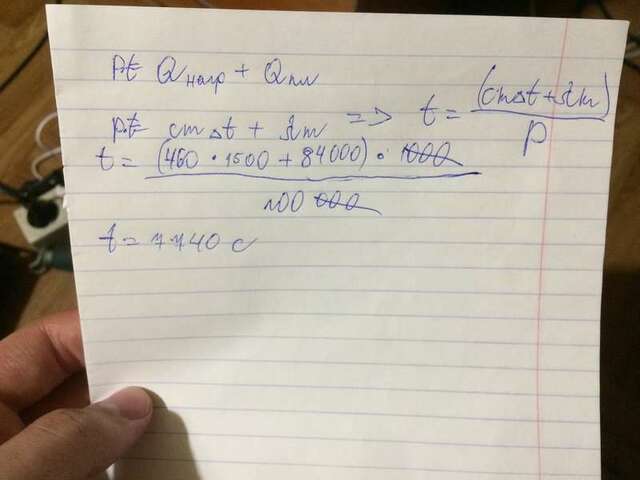 Pt= Qнагр + Qпл
p.t= cm△t + λm => t = (cm△t+λm) / P
t = (460 · 1500 + 84000) · 1000 / 100 000
t = 7740 с